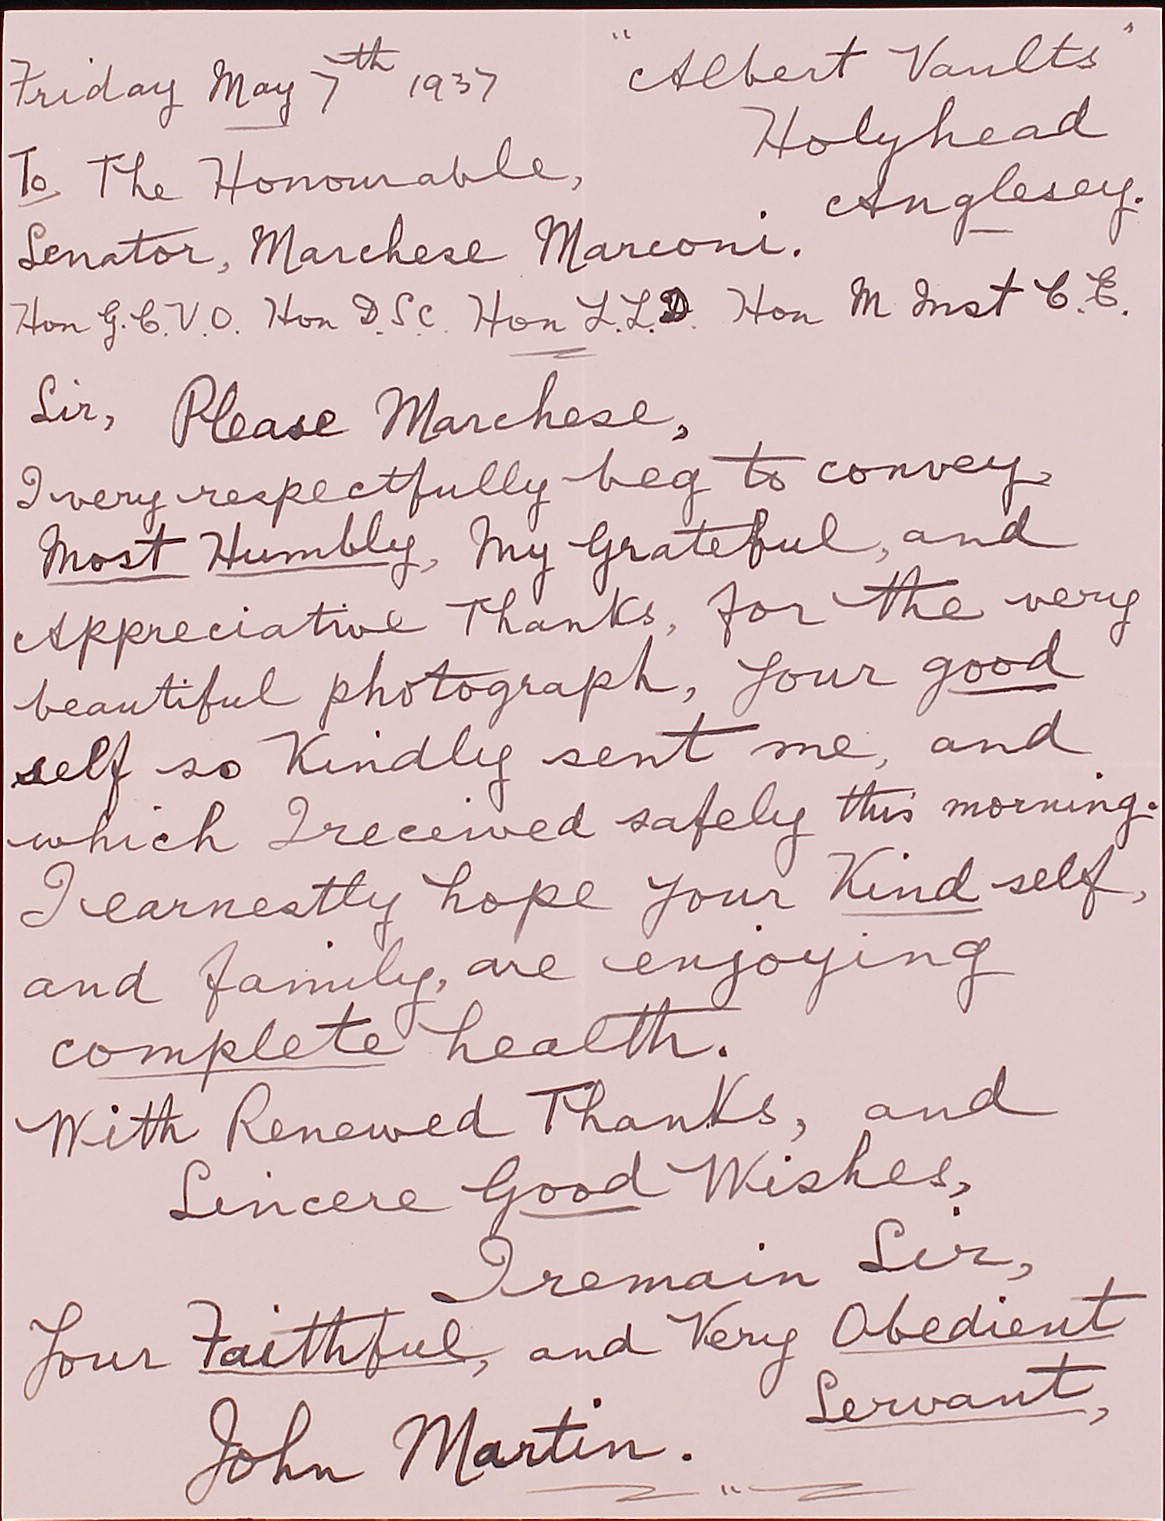 Friday May 7th 1937
"Albert Vaults"
Holyhead
Anglesey.
To The Honourable,
Senator, Marchese Marconi.
Hon G.C.V.O. Hon D.Sc. Hon L.L.D. Hon M Inst C.E.
Sir, Please Marchese,
I very respectfully beg to convey,
Most Humbly, My Grateful, and
Appreciative Thanks, for the very
beautiful photograph, your good
self so Kindly sent me, and
which I received safely this morning.
I earnestly hope your Kind self,
and family, are enjoying
complete health.
With Renewed Thanks, and
Sincere Good Wishes,
I remain Sir,
Your Faithful, and Very Obedient
Servant,
John Martin.